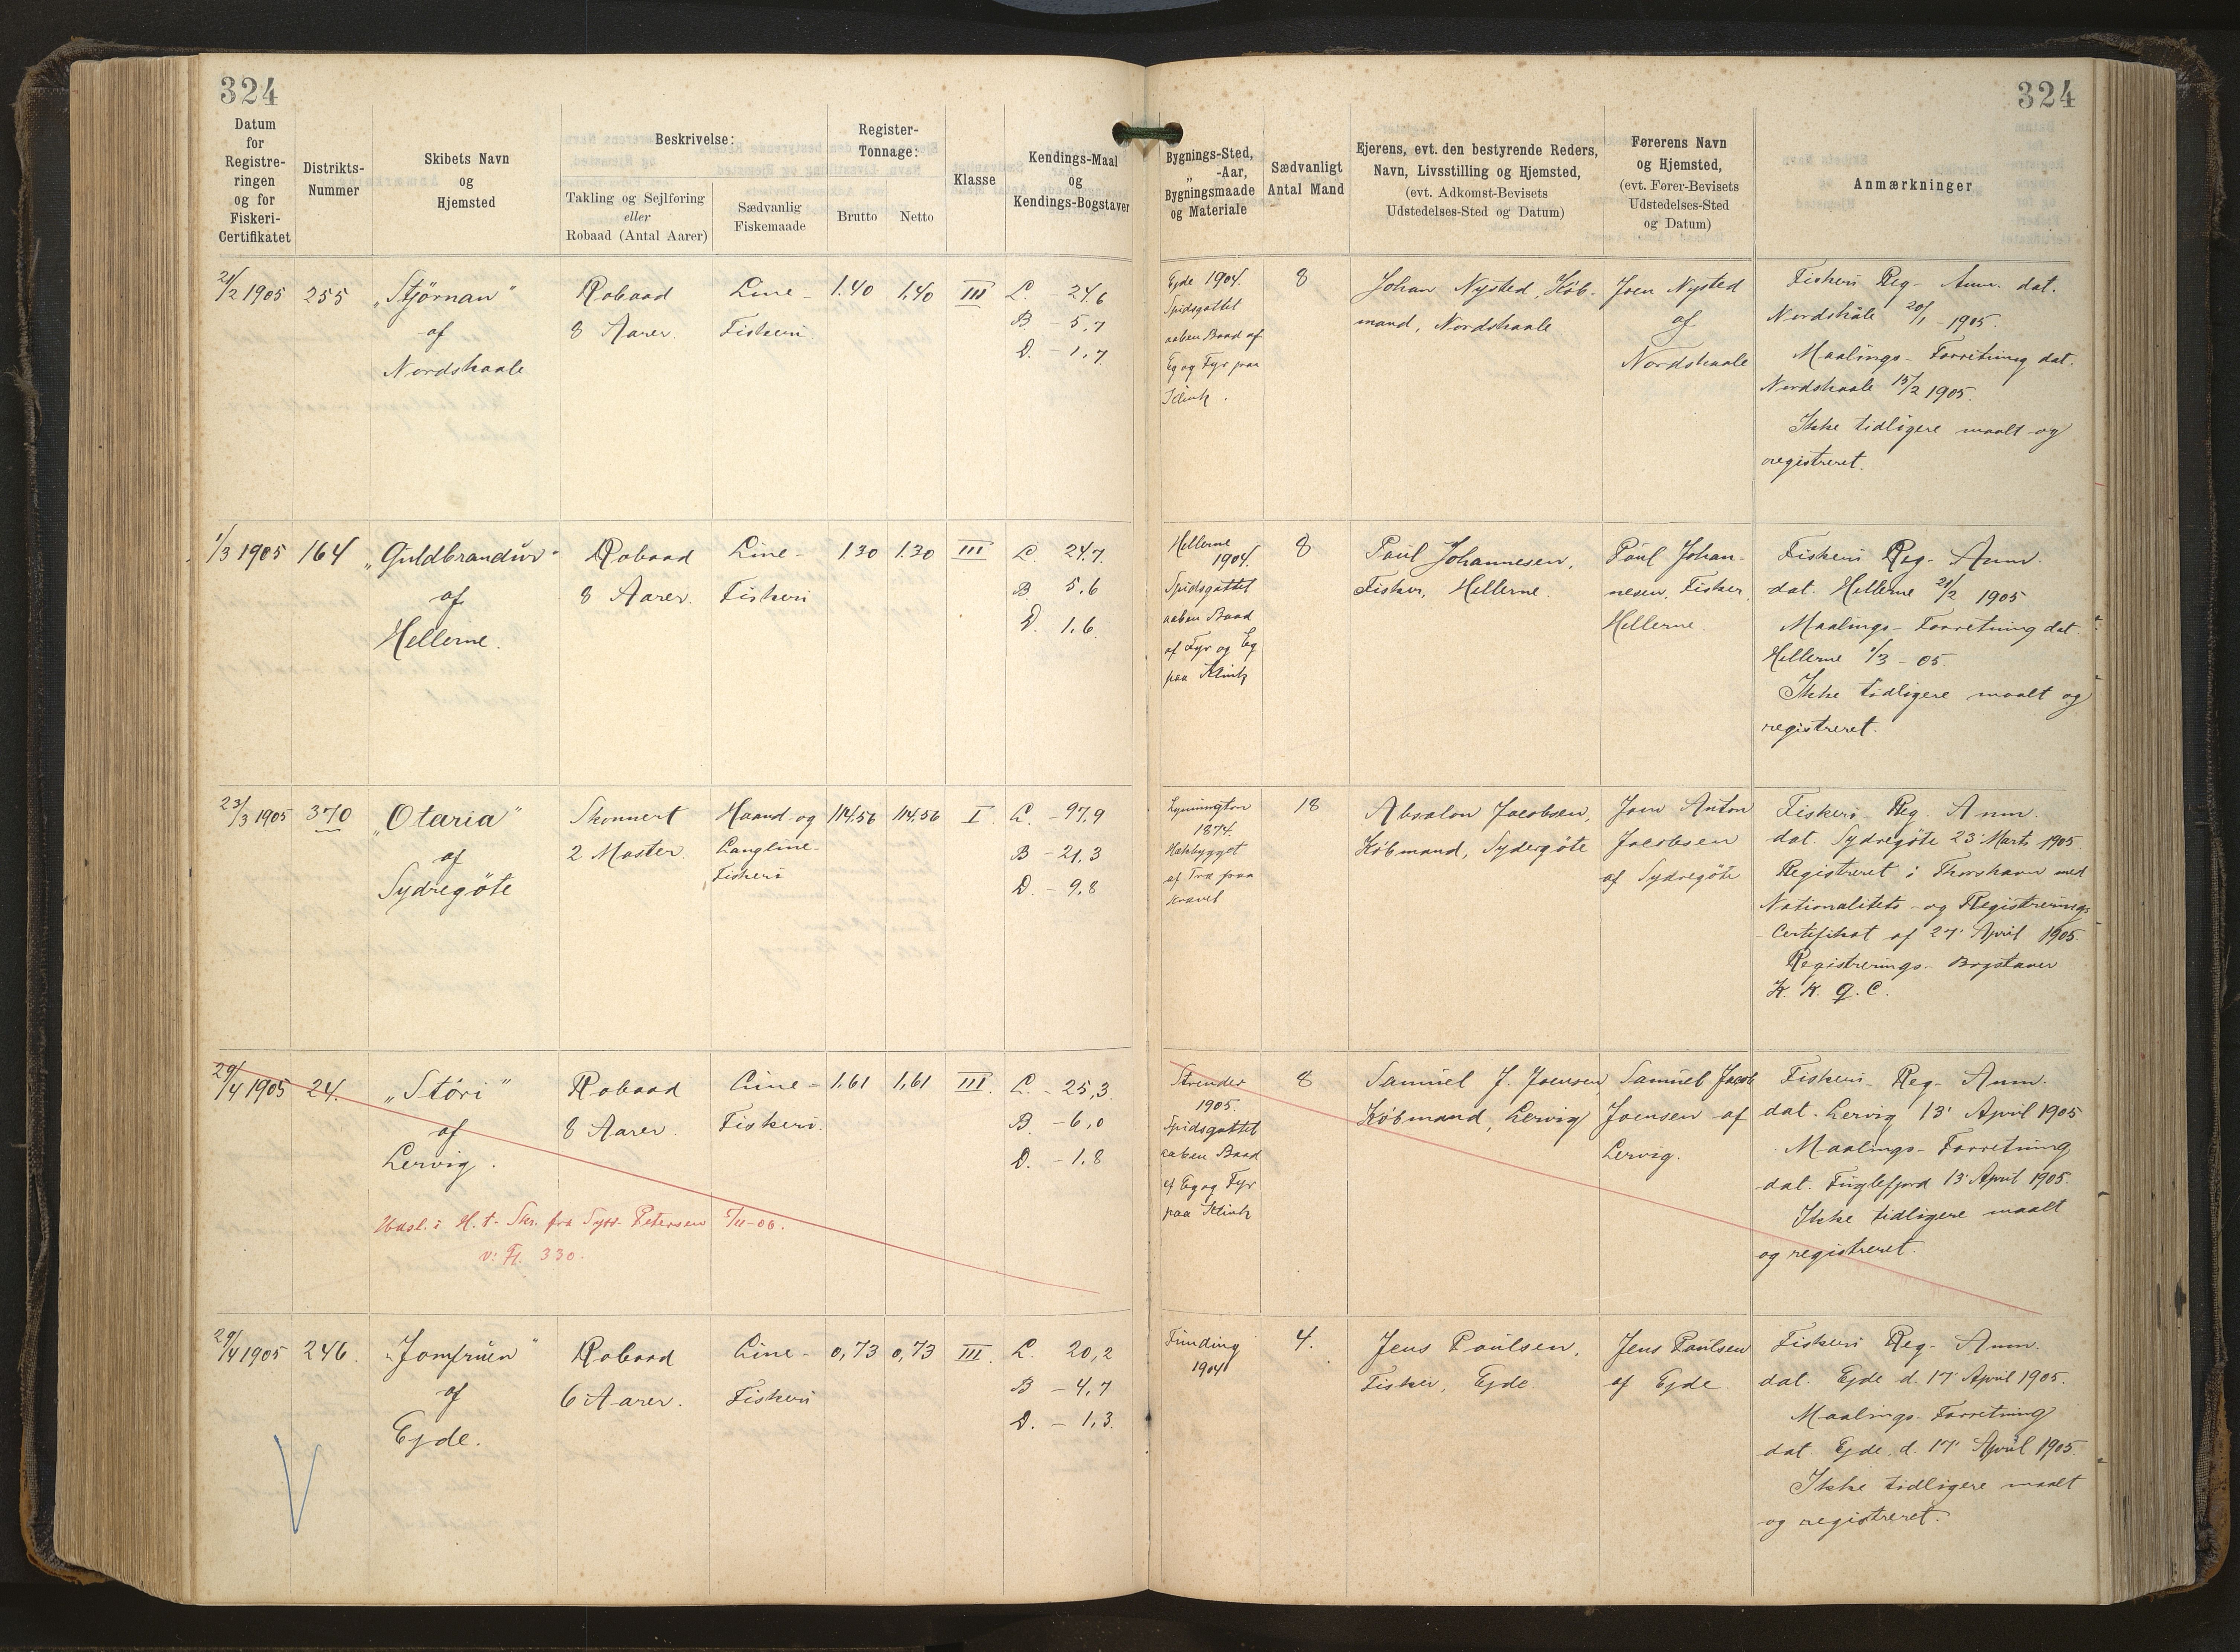 324
324
Datum
for
Registre-
ringen
og for
Fiskeri-
Certifikatet
Distrikts-
Nummer
Skibets Navn
og
Hjemsted
Beskrivelse:
Takling og Sejlføring
eller
Robaad (Antal Aarer)
Sædvanlig
Fiskemaade
Register-
Tonnage:
Brutto
Netto
Klasse
Kendings-Maal
og
Kendings-Bogstaver
Bygnings-Sted,
„ -Aar,
Bygningsmaade
og Materiale
Sædvanligt
Antal Mand
Ejerens, evt. den bestyrende Reders,
Navn, Livsstilling og Hjemsted,
(evt. Adkomst-Bevisets
Udstedelses-Sted og Datum)
Førerens Navn
og Hjemsted,
(evt. Fører-Bevisets
Udstedelses-Sted
og Datum)
Anmærkninger
21/2 1905
255
„Stjörnan“
af
Nordskaale
Robaad
8 Aarer.
Line-
Fiskeri
1.40
1,40
III
L. - 24.6
B - 5,7
D. - 1,7
Ejde 1904.
Spidsgattet
aaben Baad af
Eg og Fyr paa
Klink.
8
Johan Nysted, Køb-
mand, Nordskaale
Joen Nysted
af
Nordskaale
Fiskeri Reg- Anm. dat.
Nordskåle 20/1 - 1905.
Maalings- Forretning dat.
Nordskaale 15/2 1905.
Ikke tidligere maalt og
registreret.
1/3 1905
164
„Guldbrandur“
af
Hellerne.
Robaad
8 Aarer.
Line-
Fiskeri
1.30
1.30
III
L. 24.7.
B 5,6
D. 1,6.
Hellerne
1904.
Spidsgattet
aaben Baad
af Fyr og Eg
paa Klink
8
Poul Johannesen,
Fisker, Hellerne.
Poul Johan-
nesen, Fisker,
Hellerne.
Fiskeri Reg- Anm.
dat. Hellerne 21/2 1905
Maalings- Forretning dat.
Hellerne 1/3 - 05.
Ikke tidligere maalt og
registreret.
23/3 1905
370
„Otaria“
af
Sydregöte
Skonnert
2 Master.
Haand- og
Langline-
Fiskeri
114,56
114,56
I.
L. - 97,9
B - 21,3
D. - 9,8
Lymington
1874.
Hækbygget
af Træ paa
Kravel
18
Absalon Jacobsen,
Købmand, Sydergöte
Joen Anton
Jacobsen
af Sydregöte
Fiskeri- Reg. Anm.
dat. Sydregöte 23' Marts 1905.
Registreret i Thorshavn med
Nationalitets- og Registrerings-
Certifikat af 27' April 1905.
Registrerings- Bogstaver
29/4 1905
24.
„Stóri“
af
Lervig.
Robaad
8 Aarer.
Line-
Fiskeri.
1,61
1,61
III.
L. - 25,3.
B. - 6,0
D. - 1,8
Strender
1905.
Spidsgattet
aaben Baad
af Eg og Fyr
paa Klink
8
Samuel J. Joensen,
Købmand, Lervig
Samuel Jacob
Joensen af
Lervig.
Fiskeri- Reg- Anm.
dat. Lervig 13' April 1905
Maalings- Forretning
dat. Fuglefjord 13' April 1905.
Ikke tidligere maalt
og registreret.
Udsl. i H. t. Skr. fra Syss. Petersen 5/11-06.
v. Fl. 330.
29/4 1905
246.
„Jomfruen“
af
Ejde.
Robaad
6 Aarer.
Line-
Fiskeri
0,73
0,73
III.
L. 20,2
B - 4,7
D. - 1,3.
Funding
1904
4.
Jens Poulsen,
Fisker, Ejde
Jens Poulsen
af Ejde.
Fiskeri Reg- Anm.
dat. Ejde d. 17' April 1905.
Maalings- Forretning
dat. Ejde d. 17' April 1905.
Ikke tidligere maalt
og registreret.